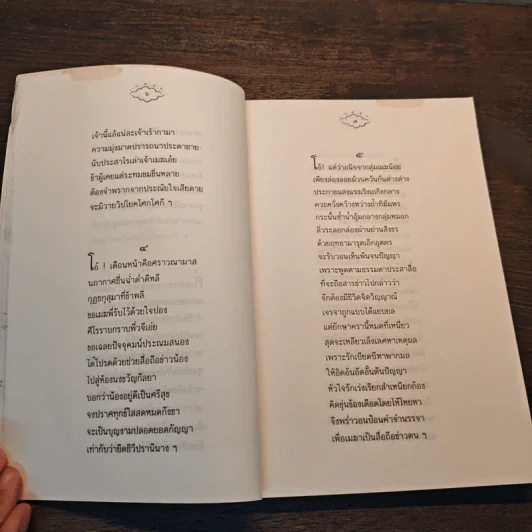 ๖
เจ้านี้แล้แน่ละเจ้าเร้ากามา
ความมุ่งมาดปรารถนาประดาชาย
นับประสาไรเล่าเจ้าเมฆเอ๋ย
ข้าผู้เคยแต่ระทมขมขื่นหลาย
ต้องจำพรากจากประณัยใจเสียดาย
จะมิวายวิปโยคโศกโกศี ฯ
๔
โอ้ ! เดือนหน้าคือศราวณามาส
นภากาศชื่นฉ่ำดำดีหลี
กูฏชกุสุมาที่ข้าพลี
ขอเมฆพี่รับไว้ด้วยใจปอง
ศิโรราบกราบพี่วจีเอ่ย
ขอเฉลยปัจจุคมน์ประณมสนอง
ได้โปรดด้วยช่วยสื่อถือข่าวน้อง
ไปสู่ห้องนงขวัญกัลยา
บอกว่าน้องอยู่ดีเป็นศรีสุข
จงปราศทุกข์ใสสดหมดกังขา
จะเป็นบุญงามปลอดยอดกัญญา
เท่ากับว่ายืดชีวีปรานีนาง ฯ
๗
๕
โอ้! แต่ว่าอนิจจากลุ่มเมฆน้อย
เพียงล่องลอยม้วนควันกันต่างต่าง
ประกายแสงแรงเริงเถกิงกลาง
คว้างหว่างถ้ำหิมพร
กระนั้นซ้ำน้ำอุ้มกลางกลุ่มหมอก
ลิ่วระลอกล่องผ่านย่านสิงขร
ด้วยฤทธามารุตเถิกอุตดร
จะรับวอนเห็นพ้นจนปัญญา
เพราะพูดตามธรรมดาประสาสื่อ
ที่จะถือสารข่าวไปกล่าวว่า
จักต้องมีชีวิตจิตวิญญาณ์
เจรจาถูกแบบได้แยบยล
แต่ยักษาครานี้หมดที่เหนี่ยว
สุดจะเหลียวเล็งเลศหาเหตุผล
เพราะรักเบียดบีฑาพากมล
ให้อึดอ้นอัดอั้นตันปัญญา
หัวใจรักเร่งเรียกสำเหนียกก้อง
คิดขุ่นข้องเดือดโดยโหยไห้หา
จึงพร่ำวอนป้อนคำจำนรรจา
เพื่อเมฆาเป็นสื่อถือข่าวตน ฯ